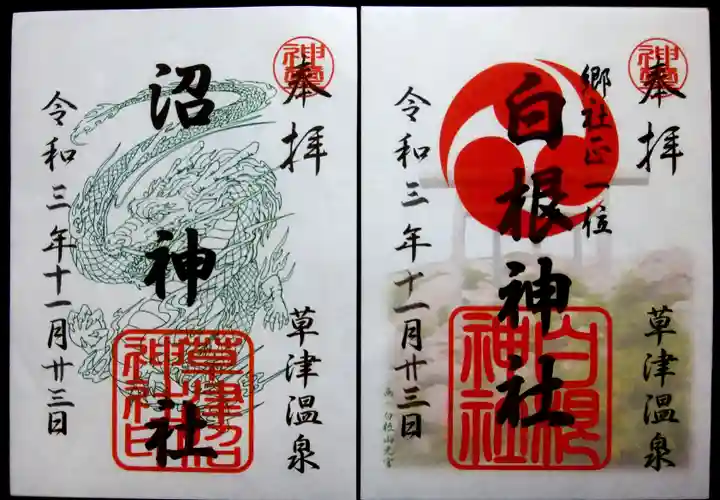 奉拝
郷社正一位
白根神社
草津温泉
令和三年十一月廿三日
白根
神社
奉拝
沼神社
草津温泉
令和三年十一月廿三日
草津沼
神社印